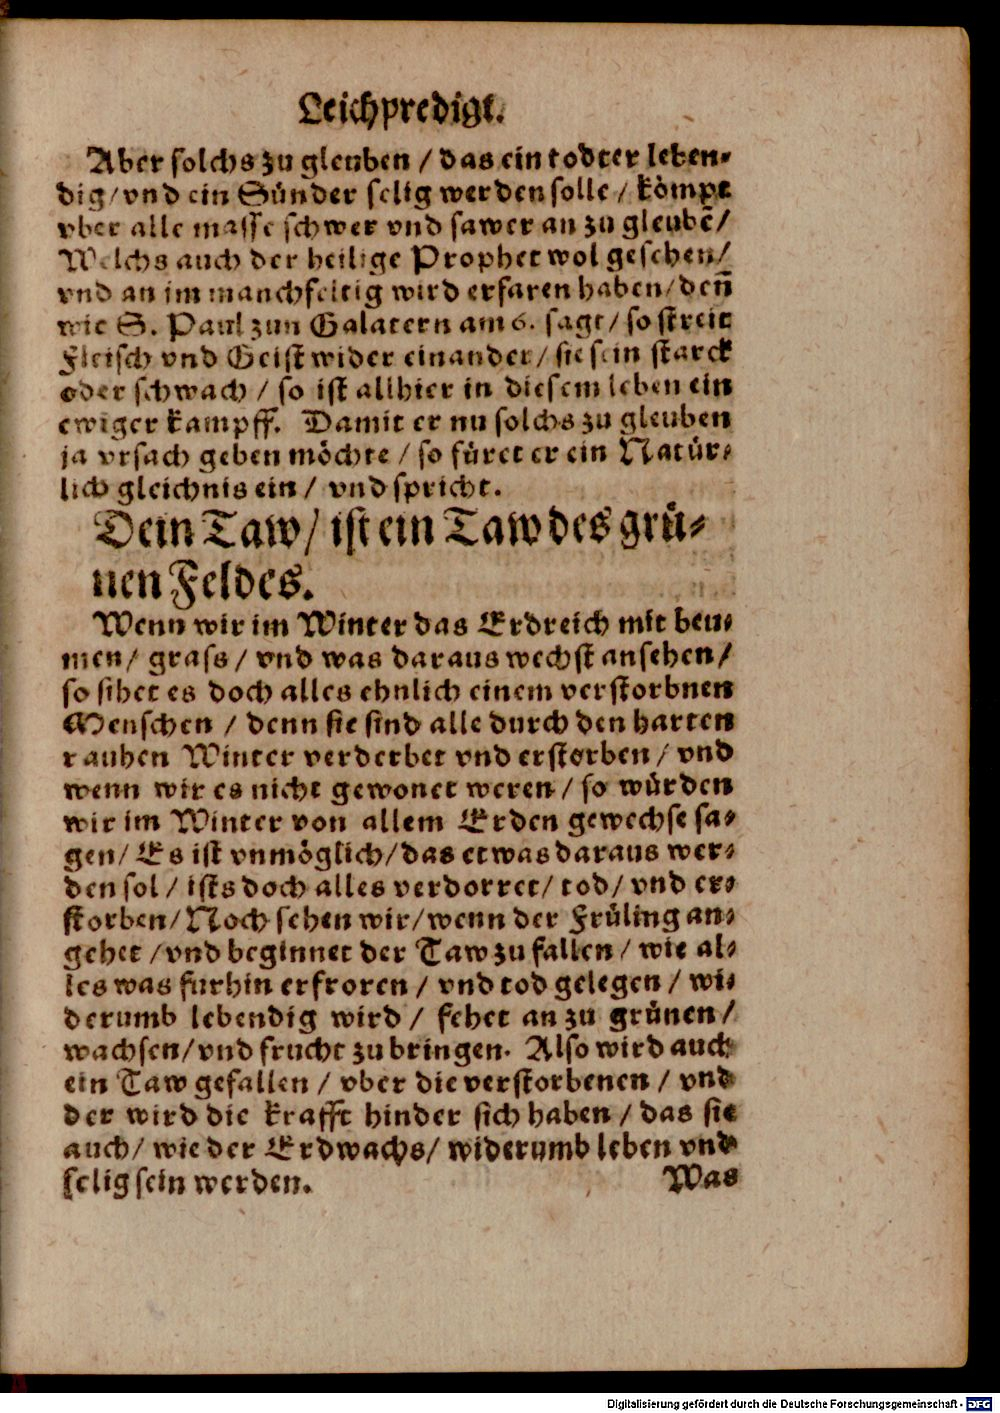 Leichpredigt.
Aber solchs zu gleuben / das ein todter leben-
dig / vnd ein Sünder selig werden solle / kömpt
vber alle masse schwer vnd sawer an zu gleubē /
Welchs auch der heilige Prophet wol gesehen /
vnd an im manchfeltig wird erfaren haben / deñ
wie S. Paul zun Galatern am 6. sagt / so streit
Fleisch vnd Geist wider einander / sie sein starck
oder schwach / so ist allhier in diesem leben ein
ewiger kampff. Damit er nu solchs zu gleuben
ja vrsach geben möchte / so füret er ein Natür-
lich gleichnis ein / vnd spricht.
Dein Taw / ist ein Taw des grü-
nen Feldes.
Wenn wir im Winter das Erdreich mit beu-
men / grass / vnd was daraus wechst ansehen /
so sihet es doch alles ehnlich einem verstorbnen
Menschen / denn sie sind alle durch den harten
rauhen Winter verderbet vnd erstorben / vnd
wenn wir es nicht gewonet weren / so würden
wir im Winter von allem Erden gewechse sa-
gen / Es ist vnmöglich / das etwas daraus wer-
den sol / ists doch alles verdorret / tod / vnd er-
storben / Noch sehen wir / wenn der Früling an-
gehet / vnd beginnet der Taw zu fallen / wie al-
les was furhin erfroren / vnd tod gelegen / wi-
derumb lebendig wird / fehet an zu grünen /
wachsen / vnd frucht zu bringen. Also wird auch
ein Taw gefallen / vber die verstorbenen / vnd
der wird die krafft hinder sich haben / das sie
auch / wie der Erdwachs / widerumb leben vnd
selig sein werden.
Was
Digitalisierung gefördert durch die Deutsche Forschungsgemeinschaft - DFG